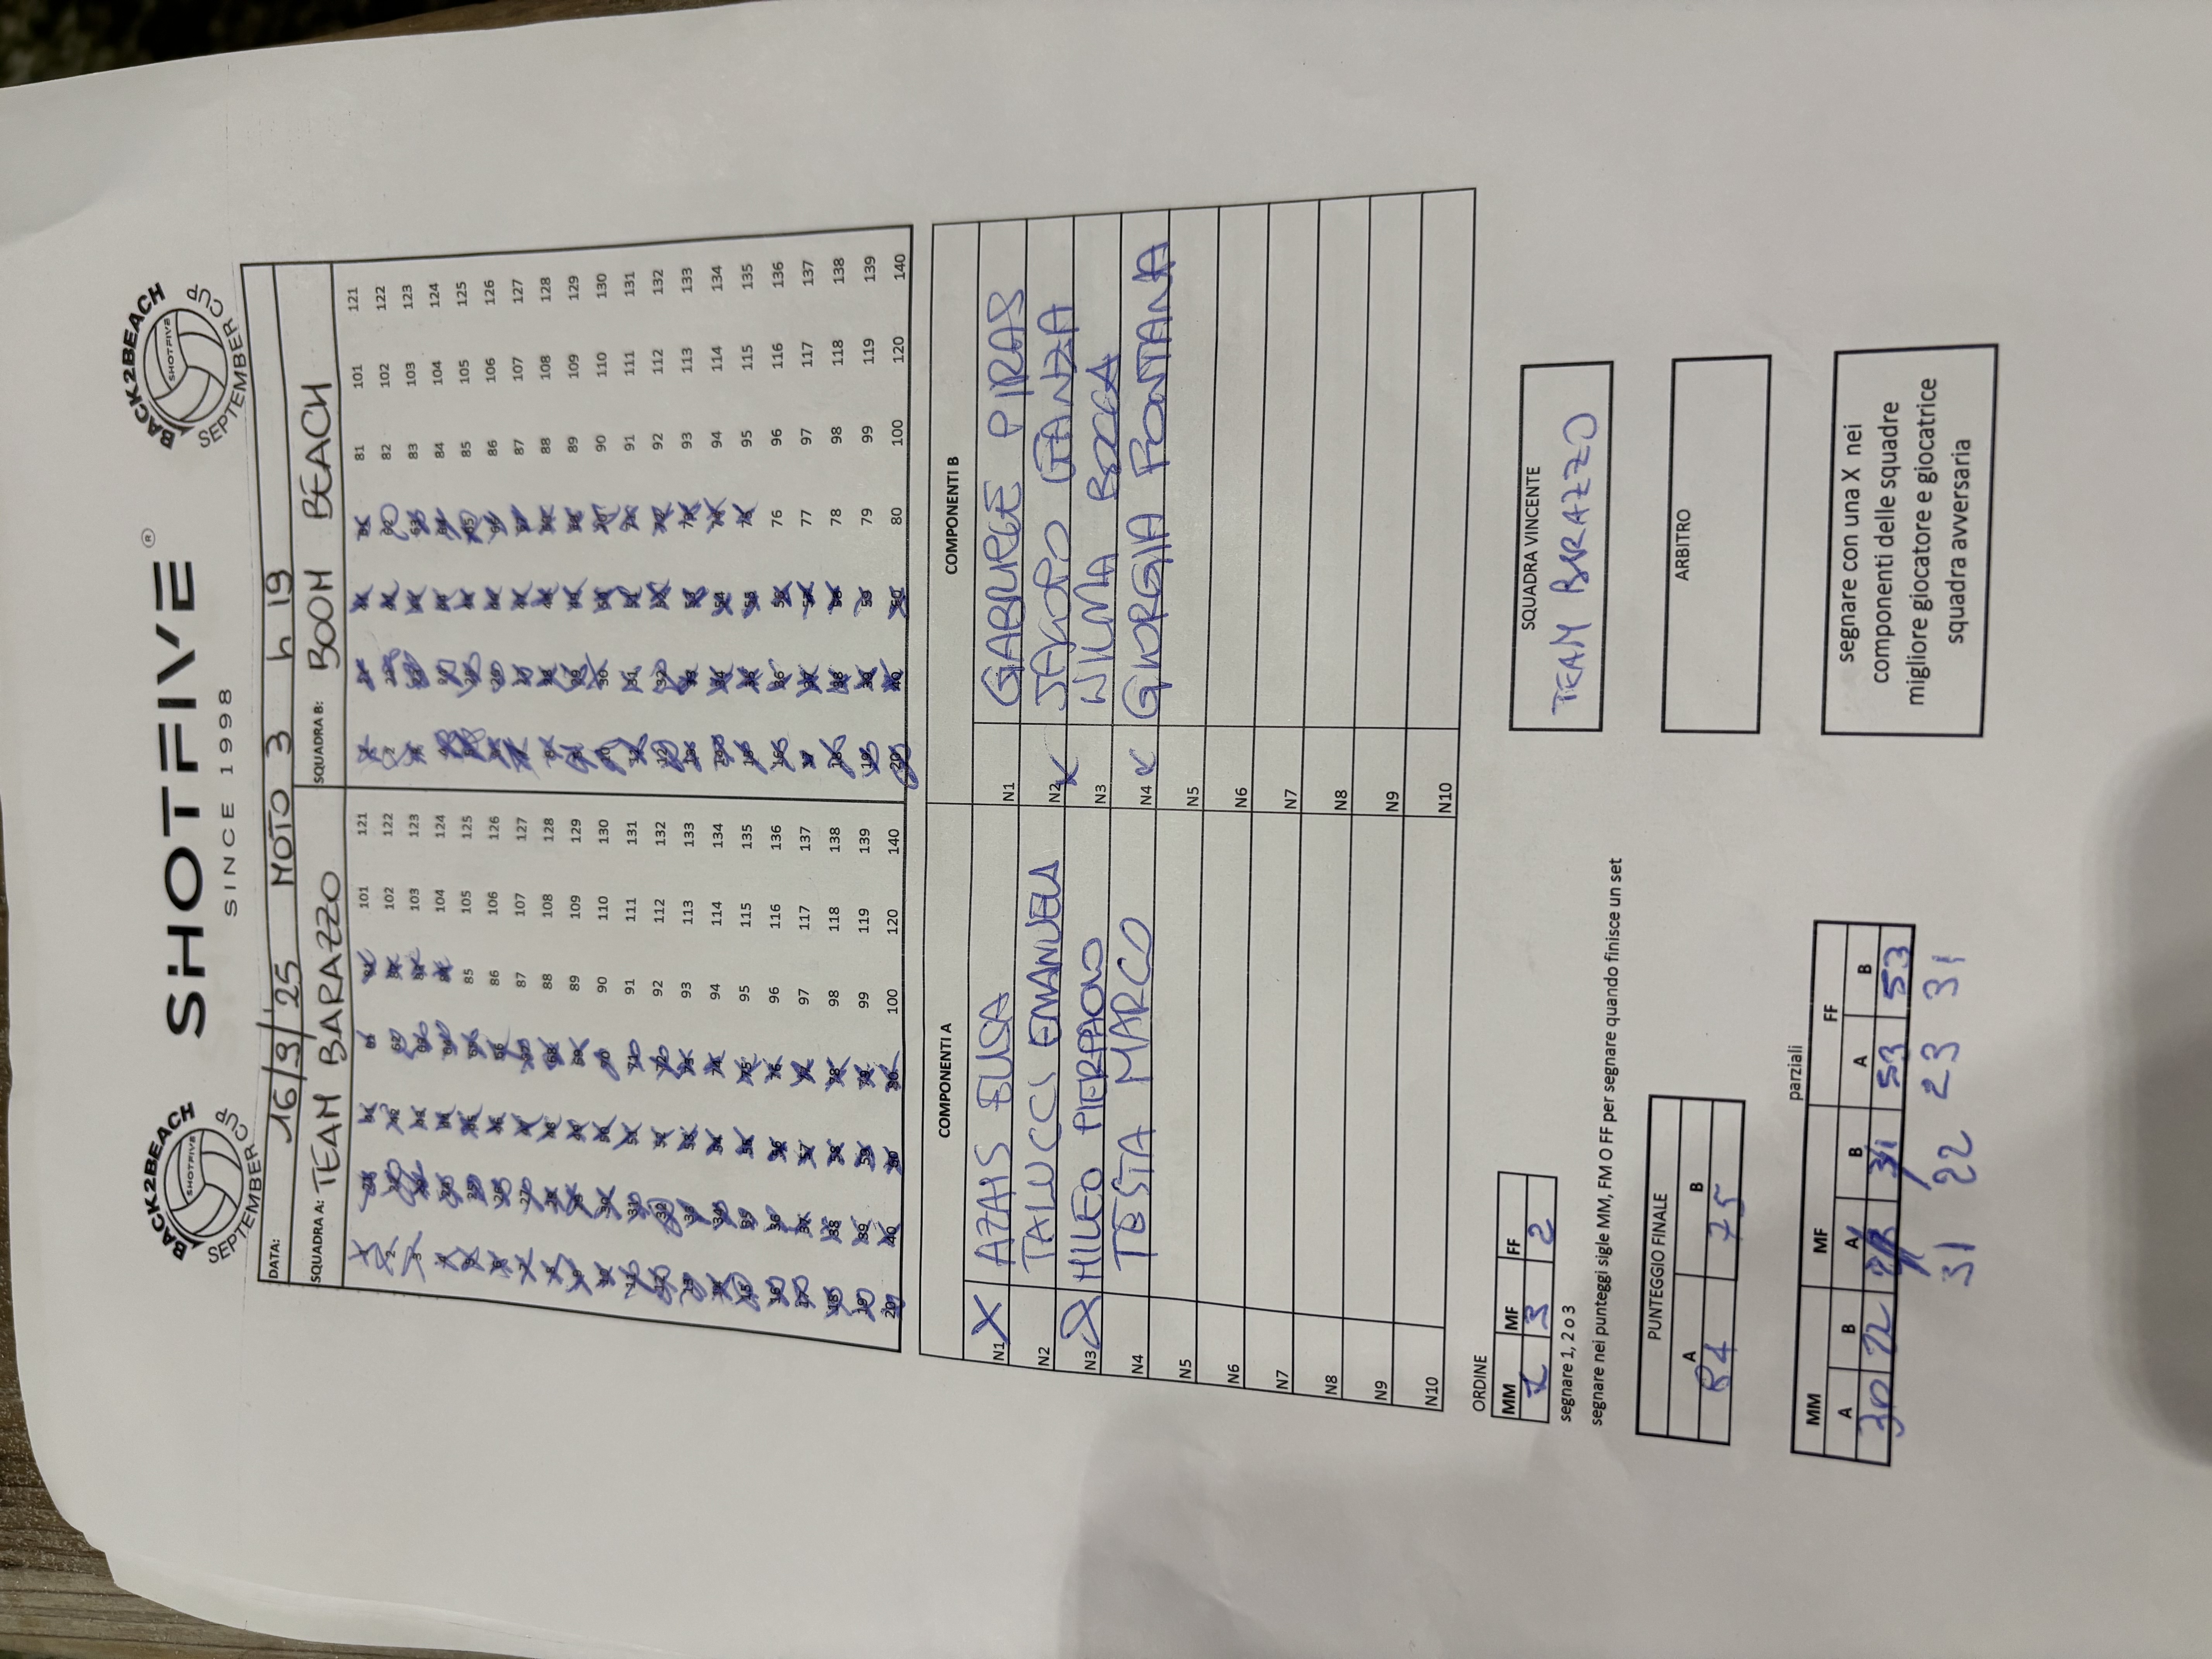 BACK2BEACH
SHOTFIVE
SEPTEMBER CUP
SHOTFIVE®
SINCE 1998
BACK2BEACH
SHOTFIVE
SEPTEMBER CUP
DATA: 16/9/25 MOTO 3 h 19
SQUADRA A: TEAM BARAZZO
SQUADRA B: BOOM BEACH
1 21 41 61 81 101 121
2 22 42 62 82 102 122
3 23 43 63 83 103 123
4 24 44 64 84 104 124
5 25 45 65 85 105 125
6 26 46 66 86 106 126
7 27 47 67 87 107 127
8 28 48 68 88 108 128
9 29 49 69 89 109 129
10 30 50 70 90 110 130
11 31 51 71 91 111 131
12 32 52 72 92 112 132
13 33 53 73 93 113 133
14 34 54 74 94 114 134
15 35 55 75 95 115 135
16 36 56 76 96 116 136
17 37 57 77 97 117 137
18 38 58 78 98 118 138
19 39 59 79 99 119 139
20 40 60 80 100 120 140
1 21 41 61 81 101 121
2 22 42 62 82 102 122
3 23 43 63 83 103 123
4 24 44 64 84 104 124
5 25 45 65 85 105 125
6 26 46 66 86 106 126
7 27 47 67 87 107 127
8 28 48 68 88 108 128
9 29 49 69 89 109 129
10 30 50 70 90 110 130
11 31 51 71 91 111 131
12 32 52 72 92 112 132
13 33 53 73 93 113 133
14 34 54 74 94 114 134
15 35 55 75 95 115 135
16 36 56 76 96 116 136
17 37 57 77 97 117 137
18 38 58 78 98 118 138
19 39 59 79 99 119 139
20 40 60 80 100 120 140
COMPONENTI A
N1 X AZAIS ELISA
N2 TALUCCI EMANUELA
N3 X MILEO PIERPAOLO
N4 TESTA MARCO
N5
N6
N7
N8
N9
N10
COMPONENTI B
N1 GABURGE PIRAS
N2 X JACOPO GANZA
N3 WILMA BOCCA
N4 X GIORGIA FONTANA
N5
N6
N7
N8
N9
N10
ORDINE
MM MF FF
3 2
segnare 1, 2 o 3
segnare nei punteggi sigle MM, FM O FF per segnare quando finisce un set
PUNTEGGIO FINALE
A B
84 75
parziali
MM MF FF
A B A B A B
30 22 31 53 53
31 22 23 31
SQUADRA VINCENTE
TEAM BRAZZO
ARBITRO
segnare con una X nei
componenti delle squadre
migliore giocatore e giocatrice
squadra avversaria